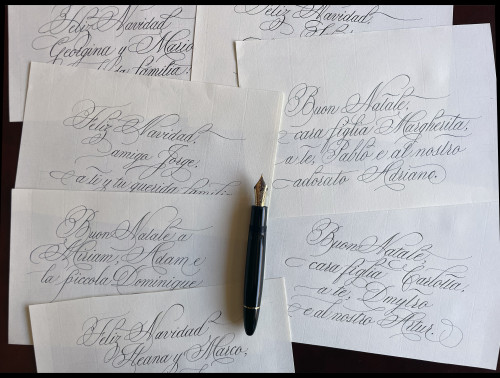 Feliz Navidad
Georgina y Mario
la familia.
Feliz Navidad
Feliz Navidad,
amigo Jorge,
a ti y tu querida familia
Buon Natale,
cara figlia Margherita,
a te, Pablo e al nostro
adorato Adriano.
Buon Natale a
Miriam, Adam e
la piccola Dominique
Buon Natale,
cara figlia Carlotta,
a te, Dmytro
e al nostro Artur.
Feliz Navidad,
Ileana y Marco,